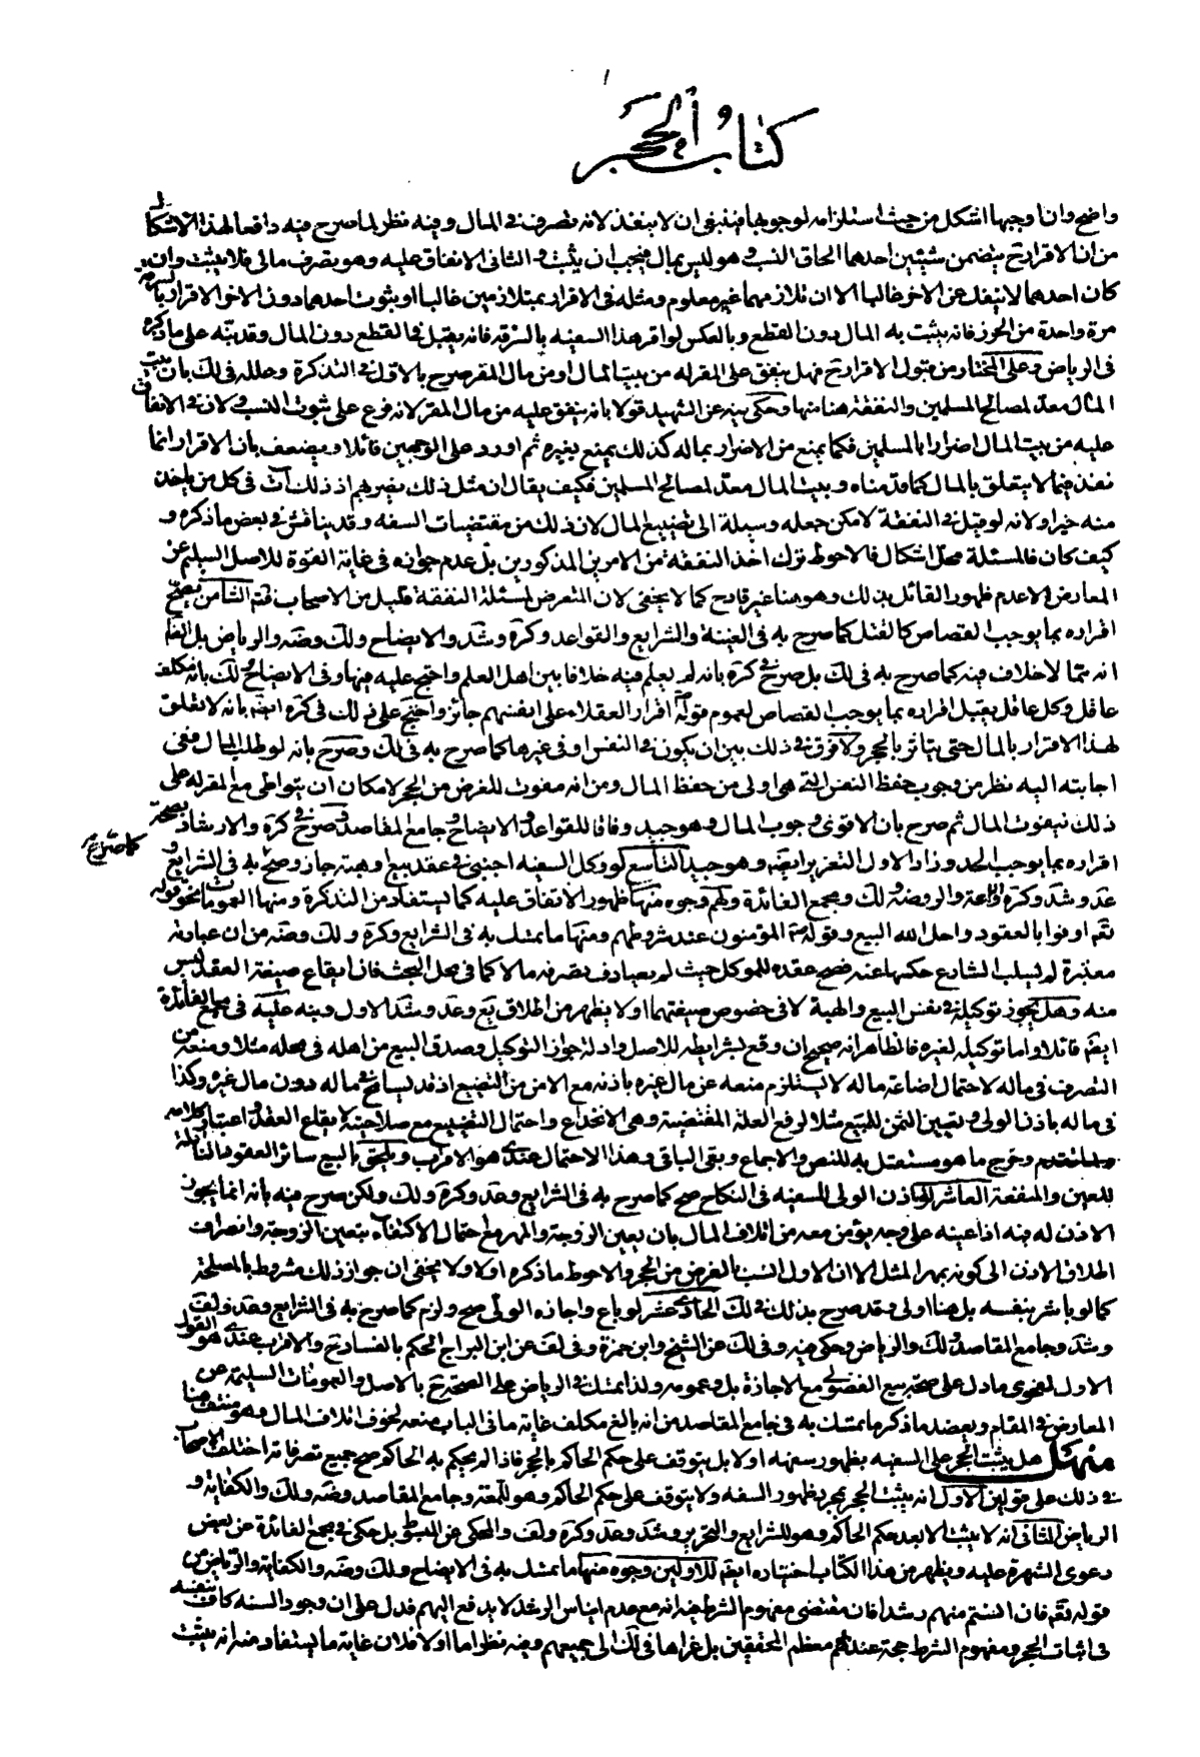 كتاب الحجر
واضح وان اوجبها اشكل من حيث استلزامه لوجوبها فينبغى ان لا ينفذ لانه تصرف فى المال وفيه نظر لما صرح فيه دافعا لهذا الاشكال
من ان الاقرار ح يتضمن شيئين احدهما الحاق النسب وهو ليس بمال فيجب ان يثبت والثانى الانفاق عليه وهو تصرف مالى فلا يثبت وان
كان احدهما لا ينفك عن الاخر غالبا الا ان تلازمهما غير معلوم ومثله فى الاقرار بمتلازمين غالبا او بثبوت احدهما دون الاخر الاقرار بالسرقة
مرة واحدة من الحر فانه يثبت به المال دون القطع وبالعكس لو اقر هذا السفيه بالسرقة فانه يقبل فى القطع دون المال وقد نبه على ما ذكره
فى الرياض وعلى المختار من قبول الاقرار ح فهل ينفق على المقر له من بيت المال او من مال المقر صرح بالاول فى التذكرة وعلله فى لك بان بيت
المال معد لمصالح المسلمين والنفقة هنا منها وحكى فيه عن الشهيد قولا بانه ينفق عليه من مال المقر لانه فرع على ثبوت النسب ولان فى الانفاق
عليه من بيت المال اضرارا بالمسلمين فكما يمنع من الاضرار بماله كذلك يمنع بغيره ثم اورد على الوجهين قائلا ويضعف بان الاقرار انما
نفذ فيما لا يتعلق بالمال كما قدمناه وبيت المال معد لمصالح المسلمين فكيف يقال ان مثل ذلك يضرهم اذ ذلك آت فى كل من ياخذ
منه خيرا ولانه لو قبل فى النفقة لامكن جعله وسيلة الى تضييع المال لان ذلك من مقتضيات السفه وقد يناقش فى بعض ما ذكره و
كيف كان فالمسئلة محل اشكال فالاحوط ترك اخذ النفقة من الامرين المذكورين بل عدم جوازه فى غاية القوة للاصل السليم عن
المعارض لا عدم ظهور القائل بذلك وهو هنا غير قادح كما لا يخفى لان المتعرض لمسئلة النفقة قليل من الاصحاب الثامن يصح
اقراره بما يوجب القصاص كالقتل كما صرح به فى الغنية والشرايع والقواعد وكرة وشد والايضاح ولك وضه والرياض بل الظاهر
انه مما لا خلاف فيه كما صرح به فى لك بل صرح فى كرة بانه لم يعلم فيه خلافا بين اهل العلم واحتج عليه فيها وفى الايضاح ولك بانه مكلف
عاقل وكل عاقل يقبل اقراره بما يوجب القصاص لعموم قوله اقرار العقلاء على انفسهم جائز واحتج على ذلك فى كرة ايضا بانه لا تعلق
لهذا الاقرار بالمال حتى يتاثر بالحجر ولا فرق فى ذلك بين ان يكون فى النفس او فى غيرها كما صرح به فى لك وصرح بانه لو طلب المال ففى
اجابته اليه نظر من وجوب حفظ النفس التى هى اولى من حفظ المال ومن انه مفوت للغرض من الحجر لامكان ان يتواطى مع المقر له على
ذلك فيفوت المال ثم صرح بان الاقوى وجوب المال وهو جيد وفاقا للقواعد والايضاح وجامع المقاصد وصرح فى كرة والارشاد بصحة
اقراره بما يوجب الحد وزاد الاول التعزير ايضا وهو جيد التاسع لو وكل السفيه اجنبى فى عقد بيع او هبة جاز وصح به فى الشرايع و
عد وشد وكرة والروضة ولك ومجمع الفائدة ولهم وجوه منها ظهور الاتفاق عليه كما يستفاد من التذكرة ومنها العمومات نحو قوله
تعم اوفوا بالعقود واحل الله البيع وقوله المؤمنون عند شروطهم ومنها ما تمسك به فى الشرايع وكرة ولك وضه من ان عبارته
معتبرة لم يسلب الشارع حكمها عنه فصح عقده للموكل حيث لم يصادف تصرفه مالا كما فى محل البحث فان ايقاع صيغة العقد ليس
منه وهل يجوز توكيله فى نفس البيع والهبة لا فى خصوص صيغتهما او لا يظهر من اطلاق يع وعد وشد الاول ونبه عليه فى مجمع الفائدة
ايضا قائلا واما توكيله لغيره فالظاهر انه صحيح ان وقع بشرايطه للاصل وادلة جواز التوكيل وصدق البيع من اهله فى محله مثلا ومنعه من
التصرف فى ماله لاحتمال اضاعة ماله لا يستلزم منعه عن مال غيره باذنه مع الامن من التضييع اذ قد يسامح فى ماله دون مال غيره وكذا
فى ماله باذن الولى وتعيين الثمن للمبيع مثلا لرفع العلة المقتضية وهى الانخداع واحتمال التضييع مع صلاحيته لايقاع العقد واعتبار كلامه
وخرج ما هو مستقل به للنص والاجماع وبقى الباقى وهذا الاحتمال عندى هو الاقرب ويلحق بالبيع سائر العقود الناقلة
للعين والمنفعة العاشر لو اذن الولى للسفيه فى النكاح صح كما صرح به فى الشرايع وعد وكرة ولك ولكن صرح فيه بانه انما يجوز
الاذن له فيه اذا عينه على وجه يؤمن معه من اتلاف المال بان يعين الزوجة والمهر مع احتمال الاكتفاء بتعين الزوجة وانصراف
اطلاق الاذن الى كونه بمهر المثل الا ان الاول انسب بالغرض من الحجر والاحوط ما ذكره اولا ولا يخفى ان جواز ذلك مشروط بالمصلحة
كما لو باشر بنفسه بل هنا اولى وقد صرح بذلك فى لك الحادى عشر لو باع واجازه الولى صح ولزم كما صرح به فى الشرايع وعد ولف
وشد وجامع المقاصد ولك والرياض وحكى فيه وفى لك عن الشيخ وابن حمزة وفى لف عن ابن البراج الحكم بالفساد ح والاقرب عندى هو القول
الاول لفحوى ما دل على صحة بيع الفضولى مع الاجازة بل وعمومه ولذا تمسك فى الرياض على الصحة ح بالاصل والعمومات السليمة عن
المعارض فى المقام ويعضد ما ذكر ما تمسك به فى جامع المقاصد من انه بالغ مكلف غاية ما فى الباب منعه لخوف اتلاف المال وهو منتف هنا
منهل هل يثبت الحجر على السفيه بظهور سفهه او لا بل يتوقف على حكم الحاكم بالحجر فاذا لم يحكم به الحاكم صح جميع تصرفاته اختلف الاصحاب
فى ذلك على قولين الاول انه يثبت الحجر بمجرد ظهور السفه ولا يتوقف على حكم الحاكم وهو للمعة وجامع المقاصد وضه ولك والكفاية و
الرياض الثانى انه لا يثبت الا بعد حكم الحاكم وهو للشرايع والتحرير وشد وعد وكرة ولف والمحكى عن المبسوط بل حكى فى مجمع الفائدة عن بعض
دعوى الشهرة عليه ويظهر من هذا الكتاب اختياره ايضا للاولين وجوه منها ما تمسك به فى الايضاح ولك وضه والكفاية والرياض من
قوله تعم فان انستم منهم رشدا فان مقتضى مفهوم الشرط فيه انه مع عدم ايناس الرشد لا يدفع اليهم فدل على ان وجود السفه كاف بنفسه
فى اثبات الحجر ومفهوم الشرط حجة عندهم معظم المحققين بل عزاها فى لك الى جميعهم وفيه نظر اما اولا فلان غاية ما يستفاد منه انه يثبت